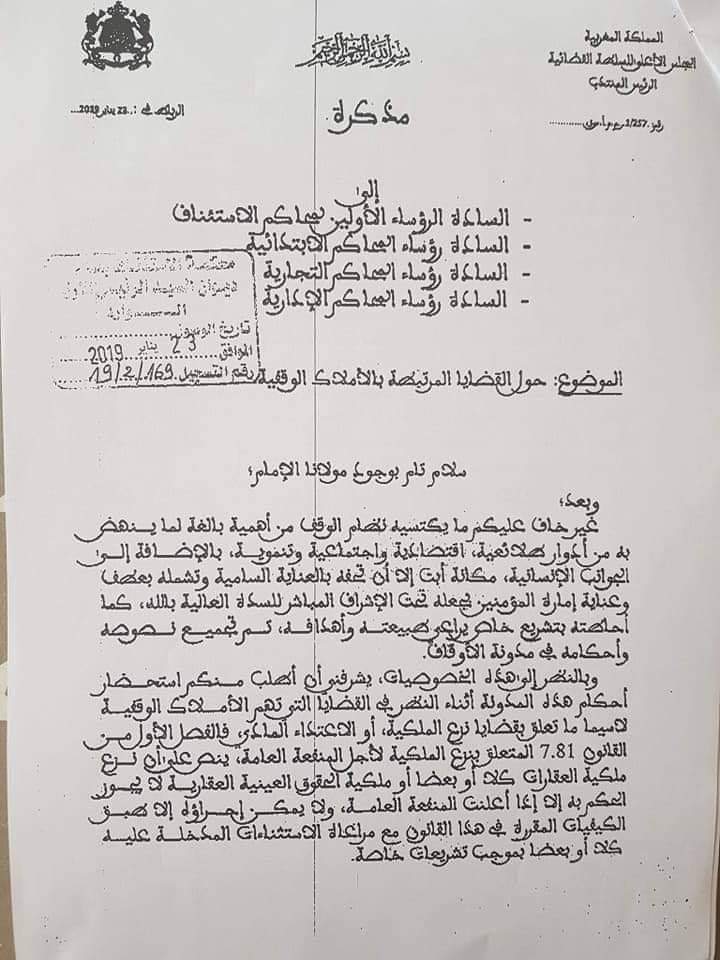 المملكة المغربية
المجلس الأعلى للسلطة القضائية
الرئيس المنتدب
بسم الله الرحمن الرحيم
مذكرة
إلى
- السادة الرؤساء الأولين بمحاكم الاستئناف
- السادة رؤساء المحاكم الابتدائية
- السادة رؤساء المحاكم التجارية
- السادة رؤساء المحاكم الإدارية
تاريخ
الموافق 23 يناير 2019
رقم التسجيل 19/2/169
الموضوع: حول القضايا المرتبطة بالأملاك الوقفية
سلام تام بوجود مولانا الإمام؛
وبعد؛
غير خاف عليكم ما يكتسيه نظام الوقف من أهمية بالغة لما ينهض
به من أدوار طلائعية، اقتصادية واجتماعية وتنموية، بالإضافة إلى
الجوانب الإنسانية، مكانة أبت إلا أن تحفه بالعناية السامية وتشمله بعطف
وعناية إمارة المؤمنين بجعله تحت الإشراف المباشر للسدة العالية بالله، كما
أحاطته بتشريع خاص يراعي طبيعته وأهدافه، تم تجميع نصوصه
وأحكامه في مدونة الأوقاف.
وبالنظر إلى هذه الخصوصيات، يشرفني أن أطلب منكم استحضار
أحكام هذه المدونة أثناء النظر في القضايا التي تهم الأملاك الوقفية
لاسيما ما تعلق بقضايا نزع الملكية، أو الاعتداء المادي، فالفصل الأول من
القانون 7.81 المتعلق بنزع الملكية لأجل المنفعة العامة، ينص على أن نزع
ملكية العقارات كلا أو بعضا أو ملكية الحقوق العينية العقارية لا يجوز
الحكم به إلا إذا أعلنت المنفعة العامة، ولا يمكن إجراؤه إلا طبق
الكيفيات المقررة في هذا القانون مع مراعاة الاستثناءات المدخلة عليه
كلا أو بعضا بموجب تشريعات خاصة.